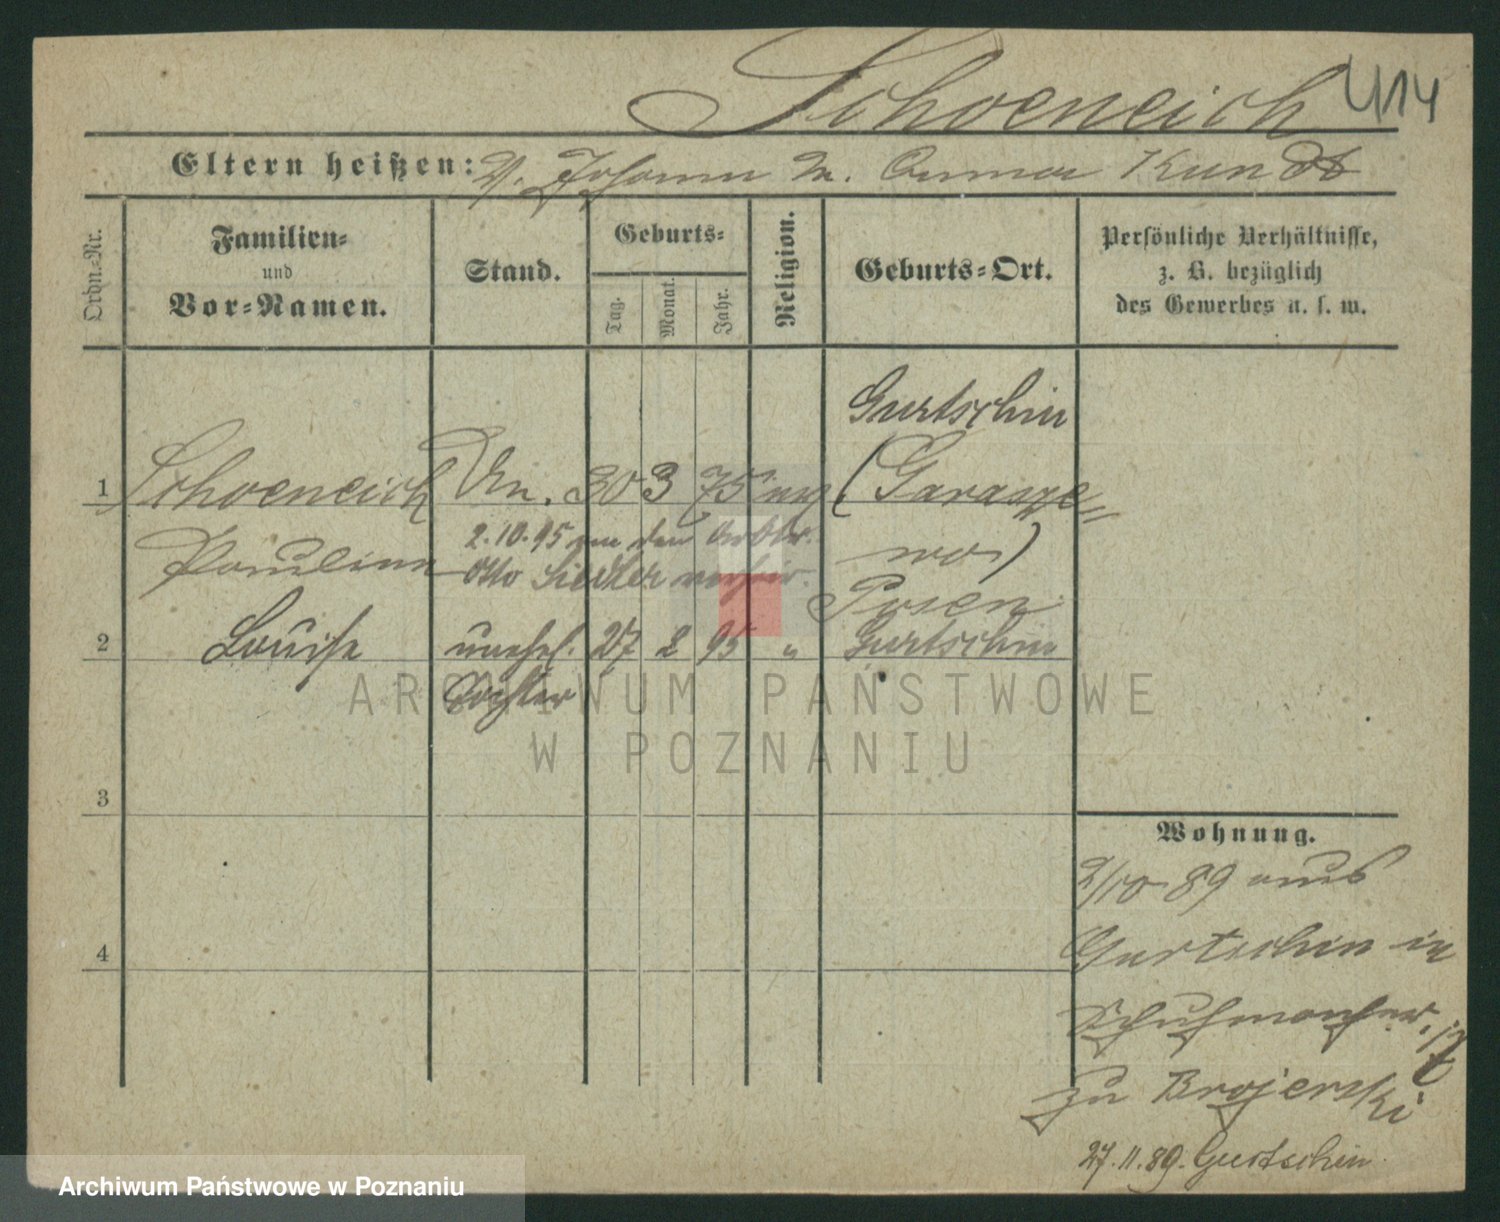 Schoeneich 414
Eltern heißen: V. Johann M. Anna Kundt
Ordn.-Nr.
Familien-
und
Vor-Namen.
Stand.
Geburts-
Tag.
Monat.
Jahr.
Religion.
Geburts-Ort.
Persönliche Verhältnisse,
z. B. bezüglich
des Gewerbes u. s. w.
Gurtschin
1 Schoeneich Un. 30 3 75 (Garasze-
Pauline wo)
2.10.95 an den Arbtr.
Otto Siedler verheir.
Posen
2 Louise unehel. 27 2 95 " Gurtschin
Tochter
ARCHIWUM PAŃSTWOWE
W POZNANIU
3
Wohnung.
2/10 89 aus
4
Gurtschin in
Schuhmacherstr. 17
zu Brojerski
27.11.89. Gurtschin
Archiwum Państwowe w Poznaniu